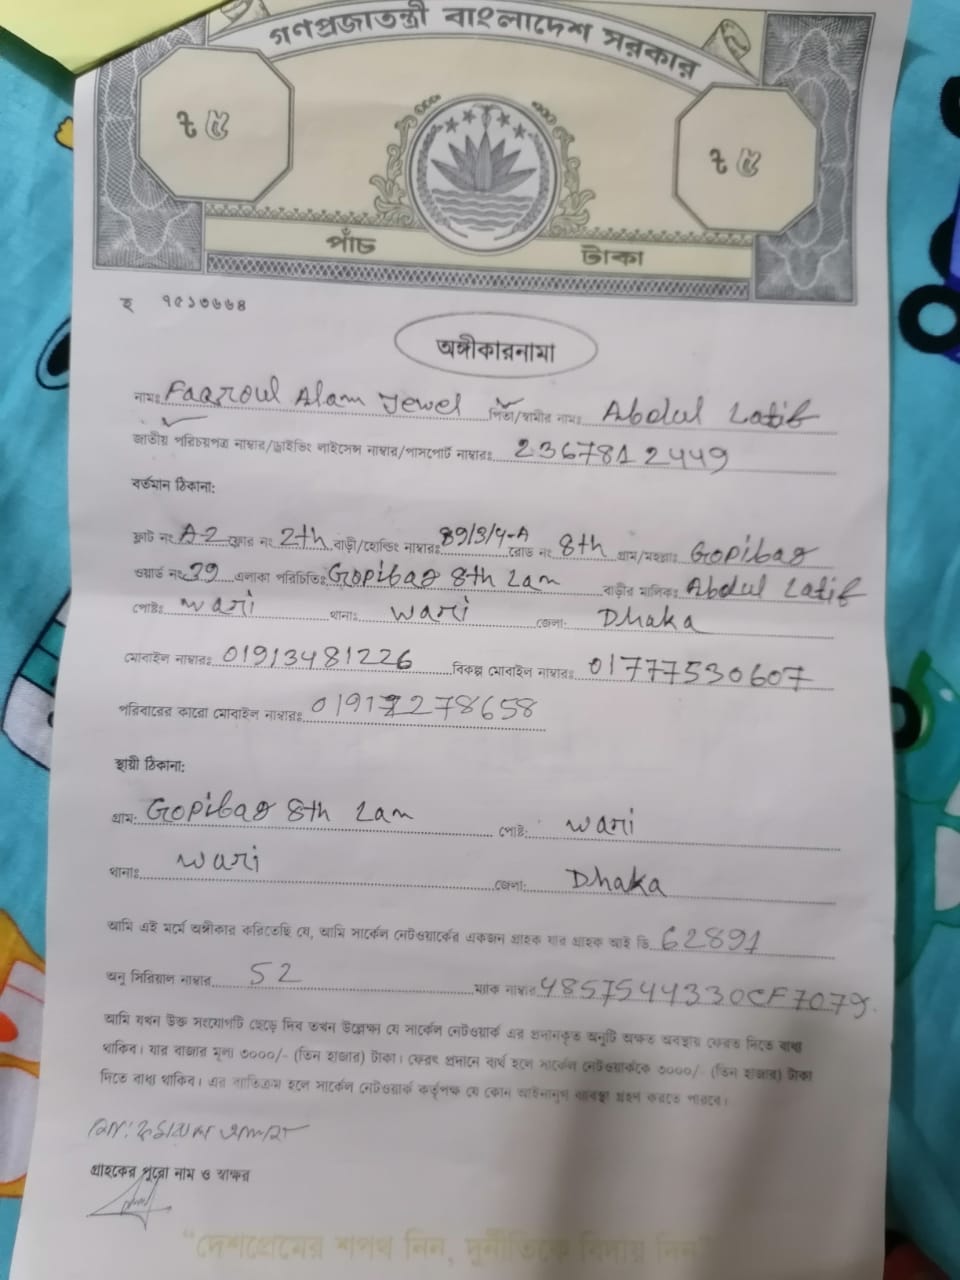 গণপ্রজাতন্ত্রী বাংলাদেশ সরকার
৳ ৫ ৳ ৫
পাঁচ টাকা
হ ৭৫১৩৬৬৪
অঙ্গীকারনামা
নামঃ Faqroul Alam Jewel পিতা/স্বামীর নামঃ Abdul Latif
জাতীয় পরিচয়পত্র নাম্বার/ড্রাইভিং লাইসেন্স নাম্বার/পাসপোর্ট নাম্বারঃ 2367812449
বর্তমান ঠিকানা:
ফ্লাট নং A-2 ফ্লোর নং 2th বাড়ী/হোল্ডিং নাম্বারঃ 89/3/4-A রোড নং 8th গ্রাম/মহল্লাঃ Gopibag
ওয়ার্ড নং 39 এলাকা পরিচিতিঃ Gopibag 8th Lan বাড়ীর মালিকঃ Abdul Latif
পোষ্টঃ wari থানাঃ wari জেলা: Dhaka
মোবাইল নাম্বারঃ 01913481226 বিকল্প মোবাইল নাম্বারঃ 01777530607
পরিবারের কারো মোবাইল নাম্বারঃ
স্থায়ী ঠিকানা:
গ্রাম: Gopibag 8th Lan পোষ্ট: wari
থানাঃ wari জেলা: Dhaka
আমি এই মর্মে অঙ্গীকার করিতেছি যে, আমি সার্কেল নেটওয়ার্কের একজন গ্রাহক যার গ্রাহক আই ডি 62891
অনু সিরিয়াল নাম্বার 52 ম্যাক নাম্বার 4857544330CF7079.
আমি যখন উক্ত সংযোগটি ছেড়ে দিব তখন উল্লেক্ষা যে সার্কেল নেটওয়ার্ক এর প্রদানকৃত অনুটি অক্ষত অবস্থায় ফেরত দিতে বাধ্য
থাকিব। যার বাজার মূল্য ৩০০০/- (তিন হাজার) টাকা। ফেরৎ প্রদানে ব্যর্থ হলে সার্কেল নেটওয়ার্ককে ৩০০০/- (তিন হাজার) টাকা
দিতে বাধ্য থাকিব। এর ব্যতিক্রম হলে সার্কেল নেটওয়ার্ক কর্তৃপক্ষ যে কোন আইনানুগ ব্যবস্থা গ্রহণ করতে পারবে।
গ্রাহকের পুরো নাম ও স্বাক্ষর
"দেশপ্রেমের শপথ নিন, দুর্নীতিকে বিদায় দিন"